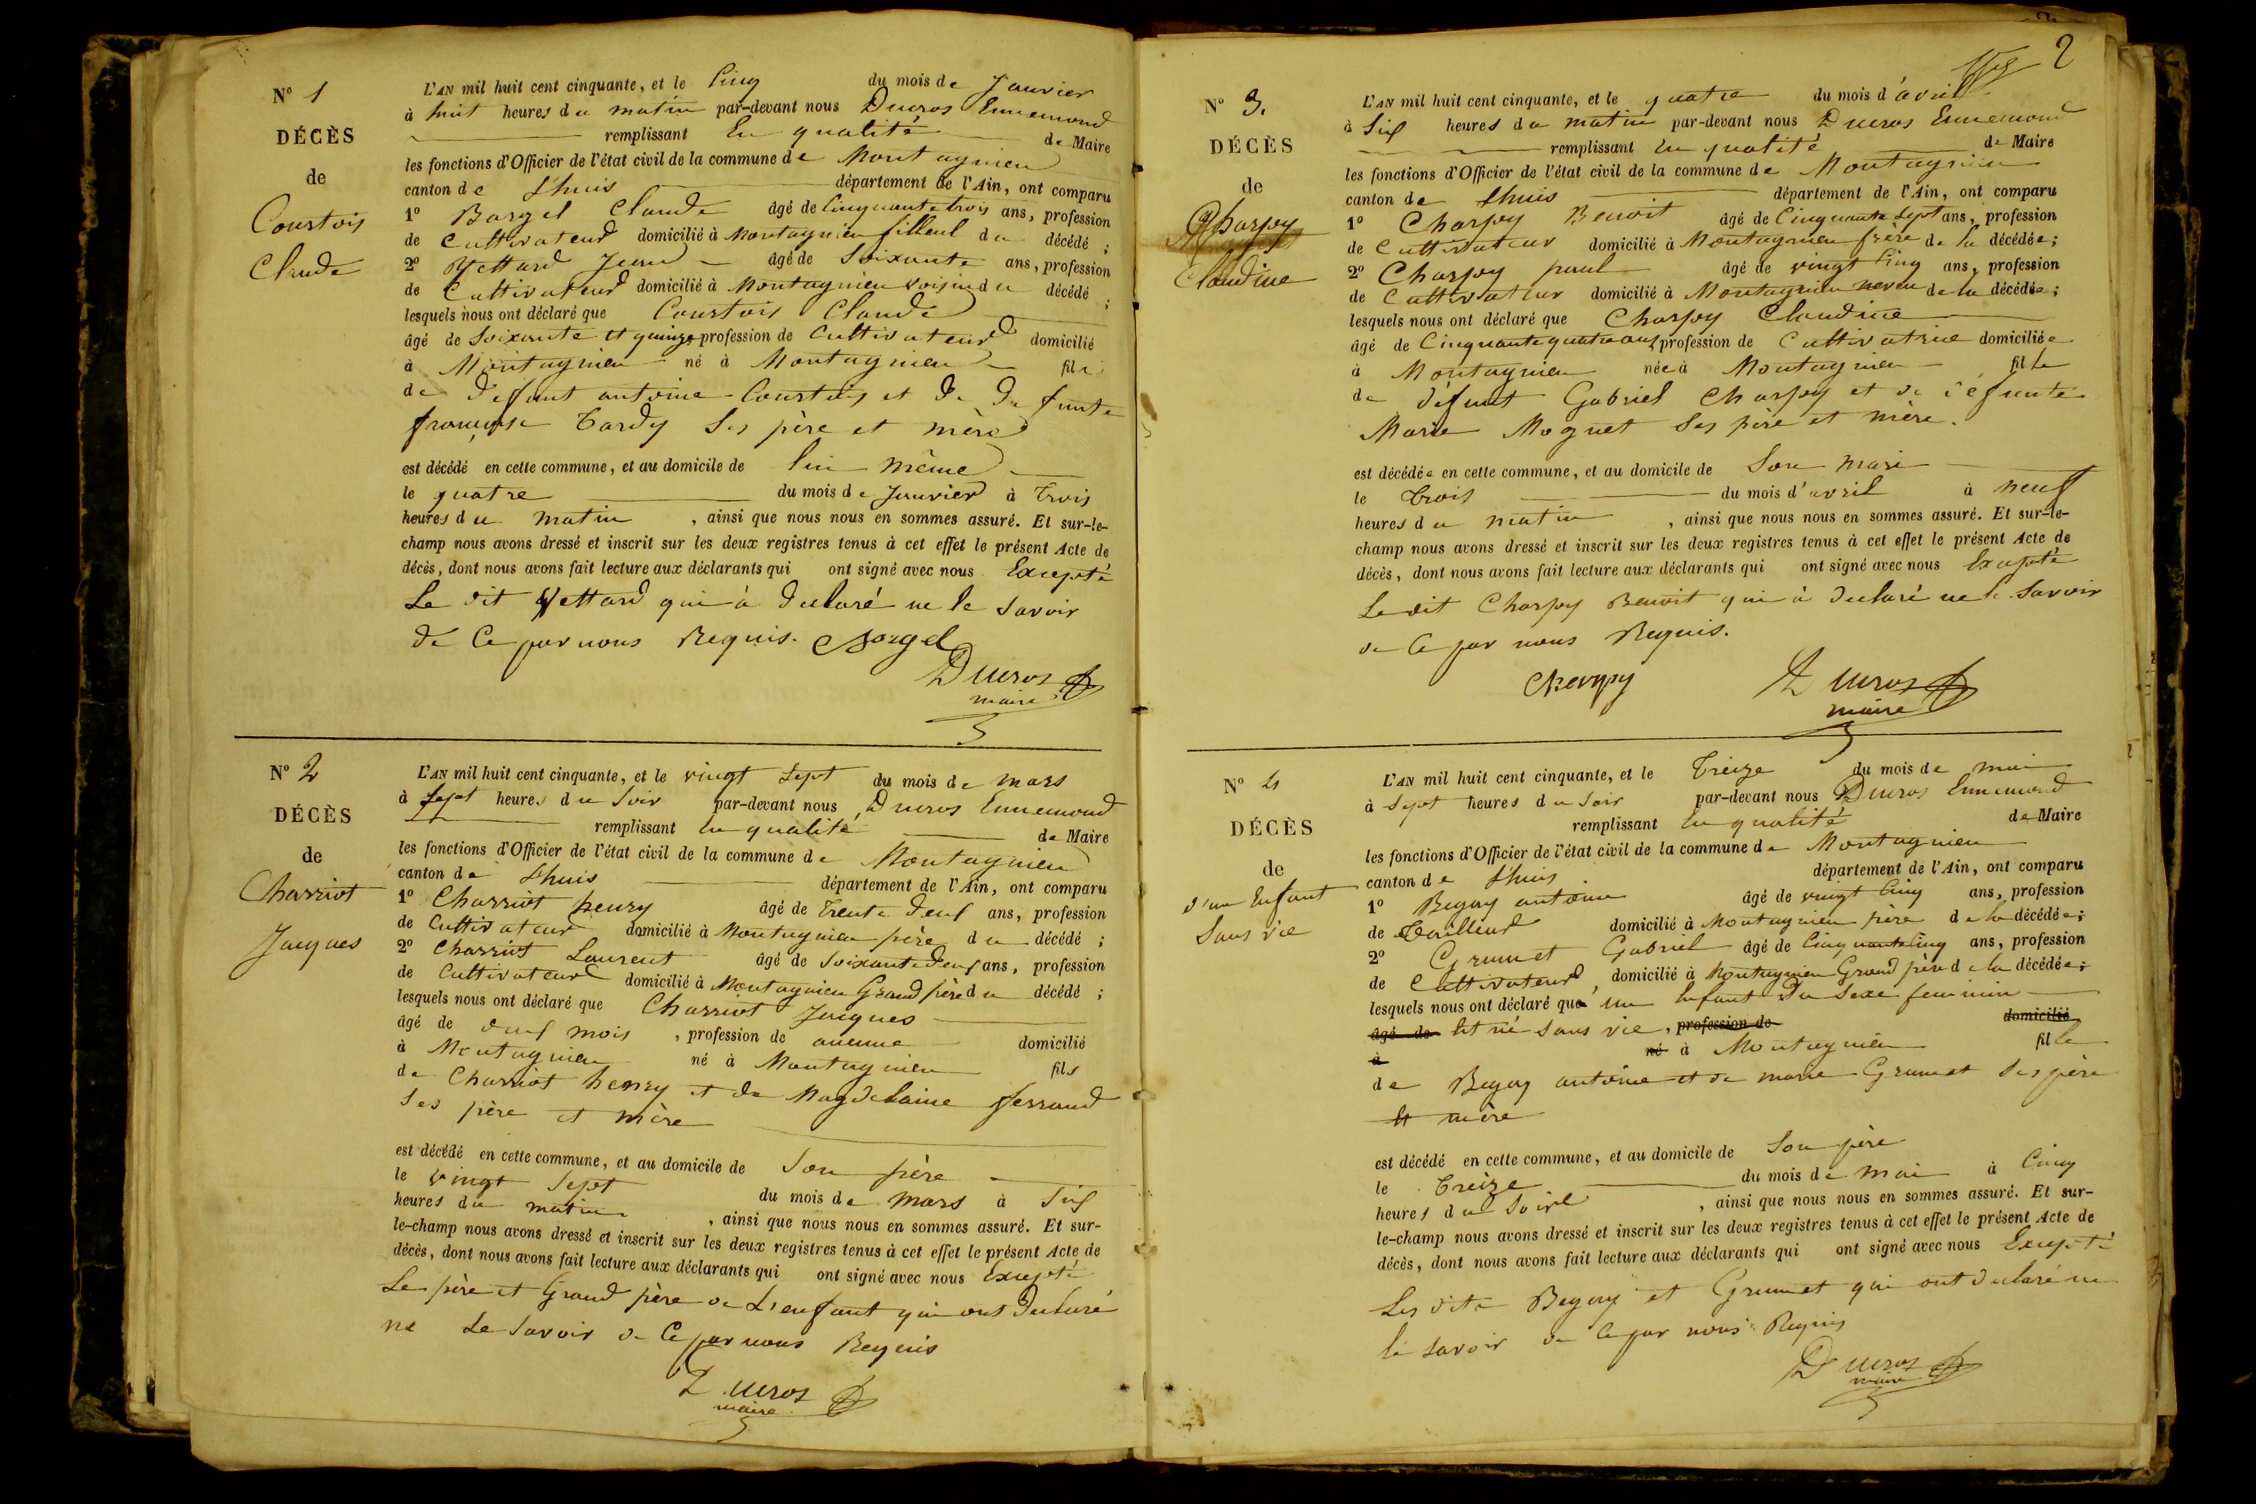 N° 1
DÉCÈS
de
Courtois
Claude
L'AN mil huit cent cinquante, et le Cinq du mois de Janvier
à huit heures du matin par-devant nous Ducros Ennemond
remplissant En qualité de Maire
les fonctions d'Officier de l'état civil de la commune de Montagnieu
canton de Lhuis département de l'Ain, ont comparu
1° Borgel Claude âgé de Cinquante trois ans, profession
de Cultivateur domicilié à Montagnieu filleul du décédé ;
2° Vettard Jean âgé de Soixante ans, profession
de Cultivateur domicilié à Montagnieu voisin du décédé ;
lesquels nous ont déclaré que Courtois Claude
âgé de Soixante et quinze profession de Cultivateur domicilié
à Montagnieu né à Montagnieu fils
de défunt antoine Courtois et de défunte
françoise Tardy Ses père et mère
est décédé en cette commune, et au domicile de lui même
le quatre du mois de Janvier à trois
heures du matin , ainsi que nous nous en sommes assuré. Et sur-le-
champ nous avons dressé et inscrit sur les deux registres tenus à cet effet le présent Acte de
décès, dont nous avons fait lecture aux déclarants qui ont signé avec nous Excepté
Le dit Vettard qui à declaré ne le Savoir
de Ce par nous Requis. Borgel
Ducros
maire
N° 2
DÉCÈS
de
Charriot
Jacques
L'AN mil huit cent cinquante, et le vingt Sept du mois de mars
à Sept heures du Soir par-devant nous Ducros Ennemond
remplissant En qualité de Maire
les fonctions d'Officier de l'état civil de la commune de Montagnieu
canton de Lhuis département de l'Ain, ont comparu
1° Charriot henry âgé de trente deux ans, profession
de Cultivateur domicilié à Montagnieu père du décédé ;
2° Charriot Laurent âgé de Soixante deux ans, profession
de Cultivateur domicilié à Montagnieu Grand père du décédé ;
lesquels nous ont déclaré que Charriot Jacques
âgé de deux mois , profession de aucune domicilié
à Montagnieu né à Montagnieu fils
de Charriot henry et de Magdelaine ferrand
Ses père et mère
est décédé en cette commune, et au domicile de Son père
le vingt Sept du mois de mars à Six
heures du matin , ainsi que nous nous en sommes assuré. Et sur-
le-champ nous avons dressé et inscrit sur les deux registres tenus à cet effet le présent Acte de
décès, dont nous avons fait lecture aux déclarants qui ont signé avec nous Excepté
Le père et Grand père de L'enfant qui ont declaré
ne Le Savoir de Ce par nous Requis
Ducros
maire
2
N° 3.
DÉCÈS
de
Charpy
Claudine
L'AN mil huit cent cinquante, et le quatre du mois d'avril
à Six heures du matin par-devant nous Ducros Ennemond
remplissant En qualité de Maire
les fonctions d'Officier de l'état civil de la commune de Montagnieu
canton de Lhuis département de l'Ain, ont comparu
1° Charpy Benoit âgé de Cinquante Sept ans, profession
de Cultivateur domicilié à Montagnieu frère de la décédée ;
2° Charpy paul âgé de vingt Cinq ans, profession
de Cultivateur domicilié à Montagnieu neveu de la décédée ;
lesquels nous ont déclaré que Charpy Claudine
âgé de Cinquante quatre ans, profession de Cultivatrice domiciliée
à Montagnieu née à Montagnieu fille
de défunt Gabriel Charpy et de défunte
Marie Moquet Ses père et mère.
est décédée en cette commune, et au domicile de Son mari
le trois du mois d'avril à neuf
heures du matin , ainsi que nous nous en sommes assuré. Et sur-le-
champ nous avons dressé et inscrit sur les deux registres tenus à cet effet le présent Acte de
décès, dont nous avons fait lecture aux déclarants qui ont signé avec nous Excepté
Le dit Charpy Benoit qui à declaré ne le Savoir
de Ce par nous Requis.
Charpy Ducros
maire
N° 4
DÉCÈS
de
d'un Enfant
Sans vie
L'AN mil huit cent cinquante, et le Treize du mois de mai
à Sept heures du Soir par-devant nous Ducros Ennemond
remplissant En qualité de Maire
les fonctions d'Officier de l'état civil de la commune de Montagnieu
canton de Lhuis département de l'Ain, ont comparu
1° Begoy antoine âgé de vingt Cinq ans, profession
de Tailleur domicilié à Montagnieu père de la décédée ;
2° Grumet Gabriel âgé de Cinquante Cinq ans, profession
de Cultivateur domicilié à Montagnieu Grand père de la décédée ;
lesquels nous ont déclaré que un Enfant du Sexe feminin
âgé de Est né Sans vie , profession de domicilié
à né à Montagnieu fille
de Begoy antoine et de marie Grumet Ses père
Et mère
est décédé en cette commune, et au domicile de Son père
le Treize du mois de mai à Cinq
heures du Soir , ainsi que nous nous en sommes assuré. Et sur-
le-champ nous avons dressé et inscrit sur les deux registres tenus à cet effet le présent Acte de
décès, dont nous avons fait lecture aux déclarants qui ont signé avec nous Excepté
Les dits Begoy et Grumet qui ont declaré ne
le Savoir de Ce par nous Requis
Ducros
maire